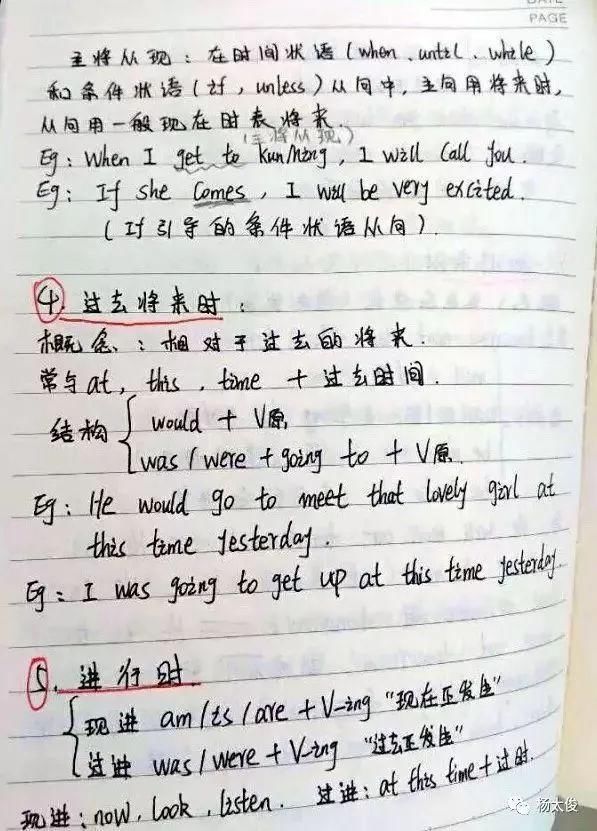 PAGE
主将从现：在时间状语（when、until、while）
和条件状语（if，unless）从句中，主句用将来时，
从句用一般现在时表将来.
（主将从现）
Eg：When I get to KunMing，I will call you.
Eg：If she comes，I will be very excited.
（If引导的条件状语从句）.
4. 过去将来时：
概念：相对于过去的将来.
常与at，this，time + 过去时间.
结构 { would + V原
was / were + going to + V原.
Eg：He would go to meet that lovely girl at
this time yesterday.
Eg：I was going to get up at this time yesterday.
5. 进行时
{ 现进 am/is/are + V-ing “现在正发生”
过进 was/were + V-ing “过去正发生”
现进：now，look，listen. 过进：at this time + 过时.
杨太俊